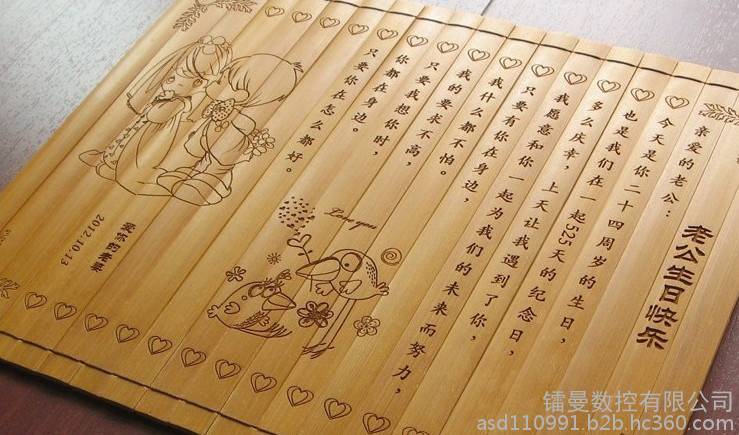 老公生日快乐
亲爱的老公：
今天是你二十四周岁的生日，
也是我们在一起525天的纪念日，
多么庆幸，上天让我遇到了你，
我愿意和你一起为我们的未来而努力，
只要有你在身边，
我什么都不怕。
我的要求不高，
只要我想你时，
你都在身边。
只要你在怎么都好。
Love you
爱你的老婆
2012.10.13
镭曼数控有限公司
asd110991.b2b.hc360.com